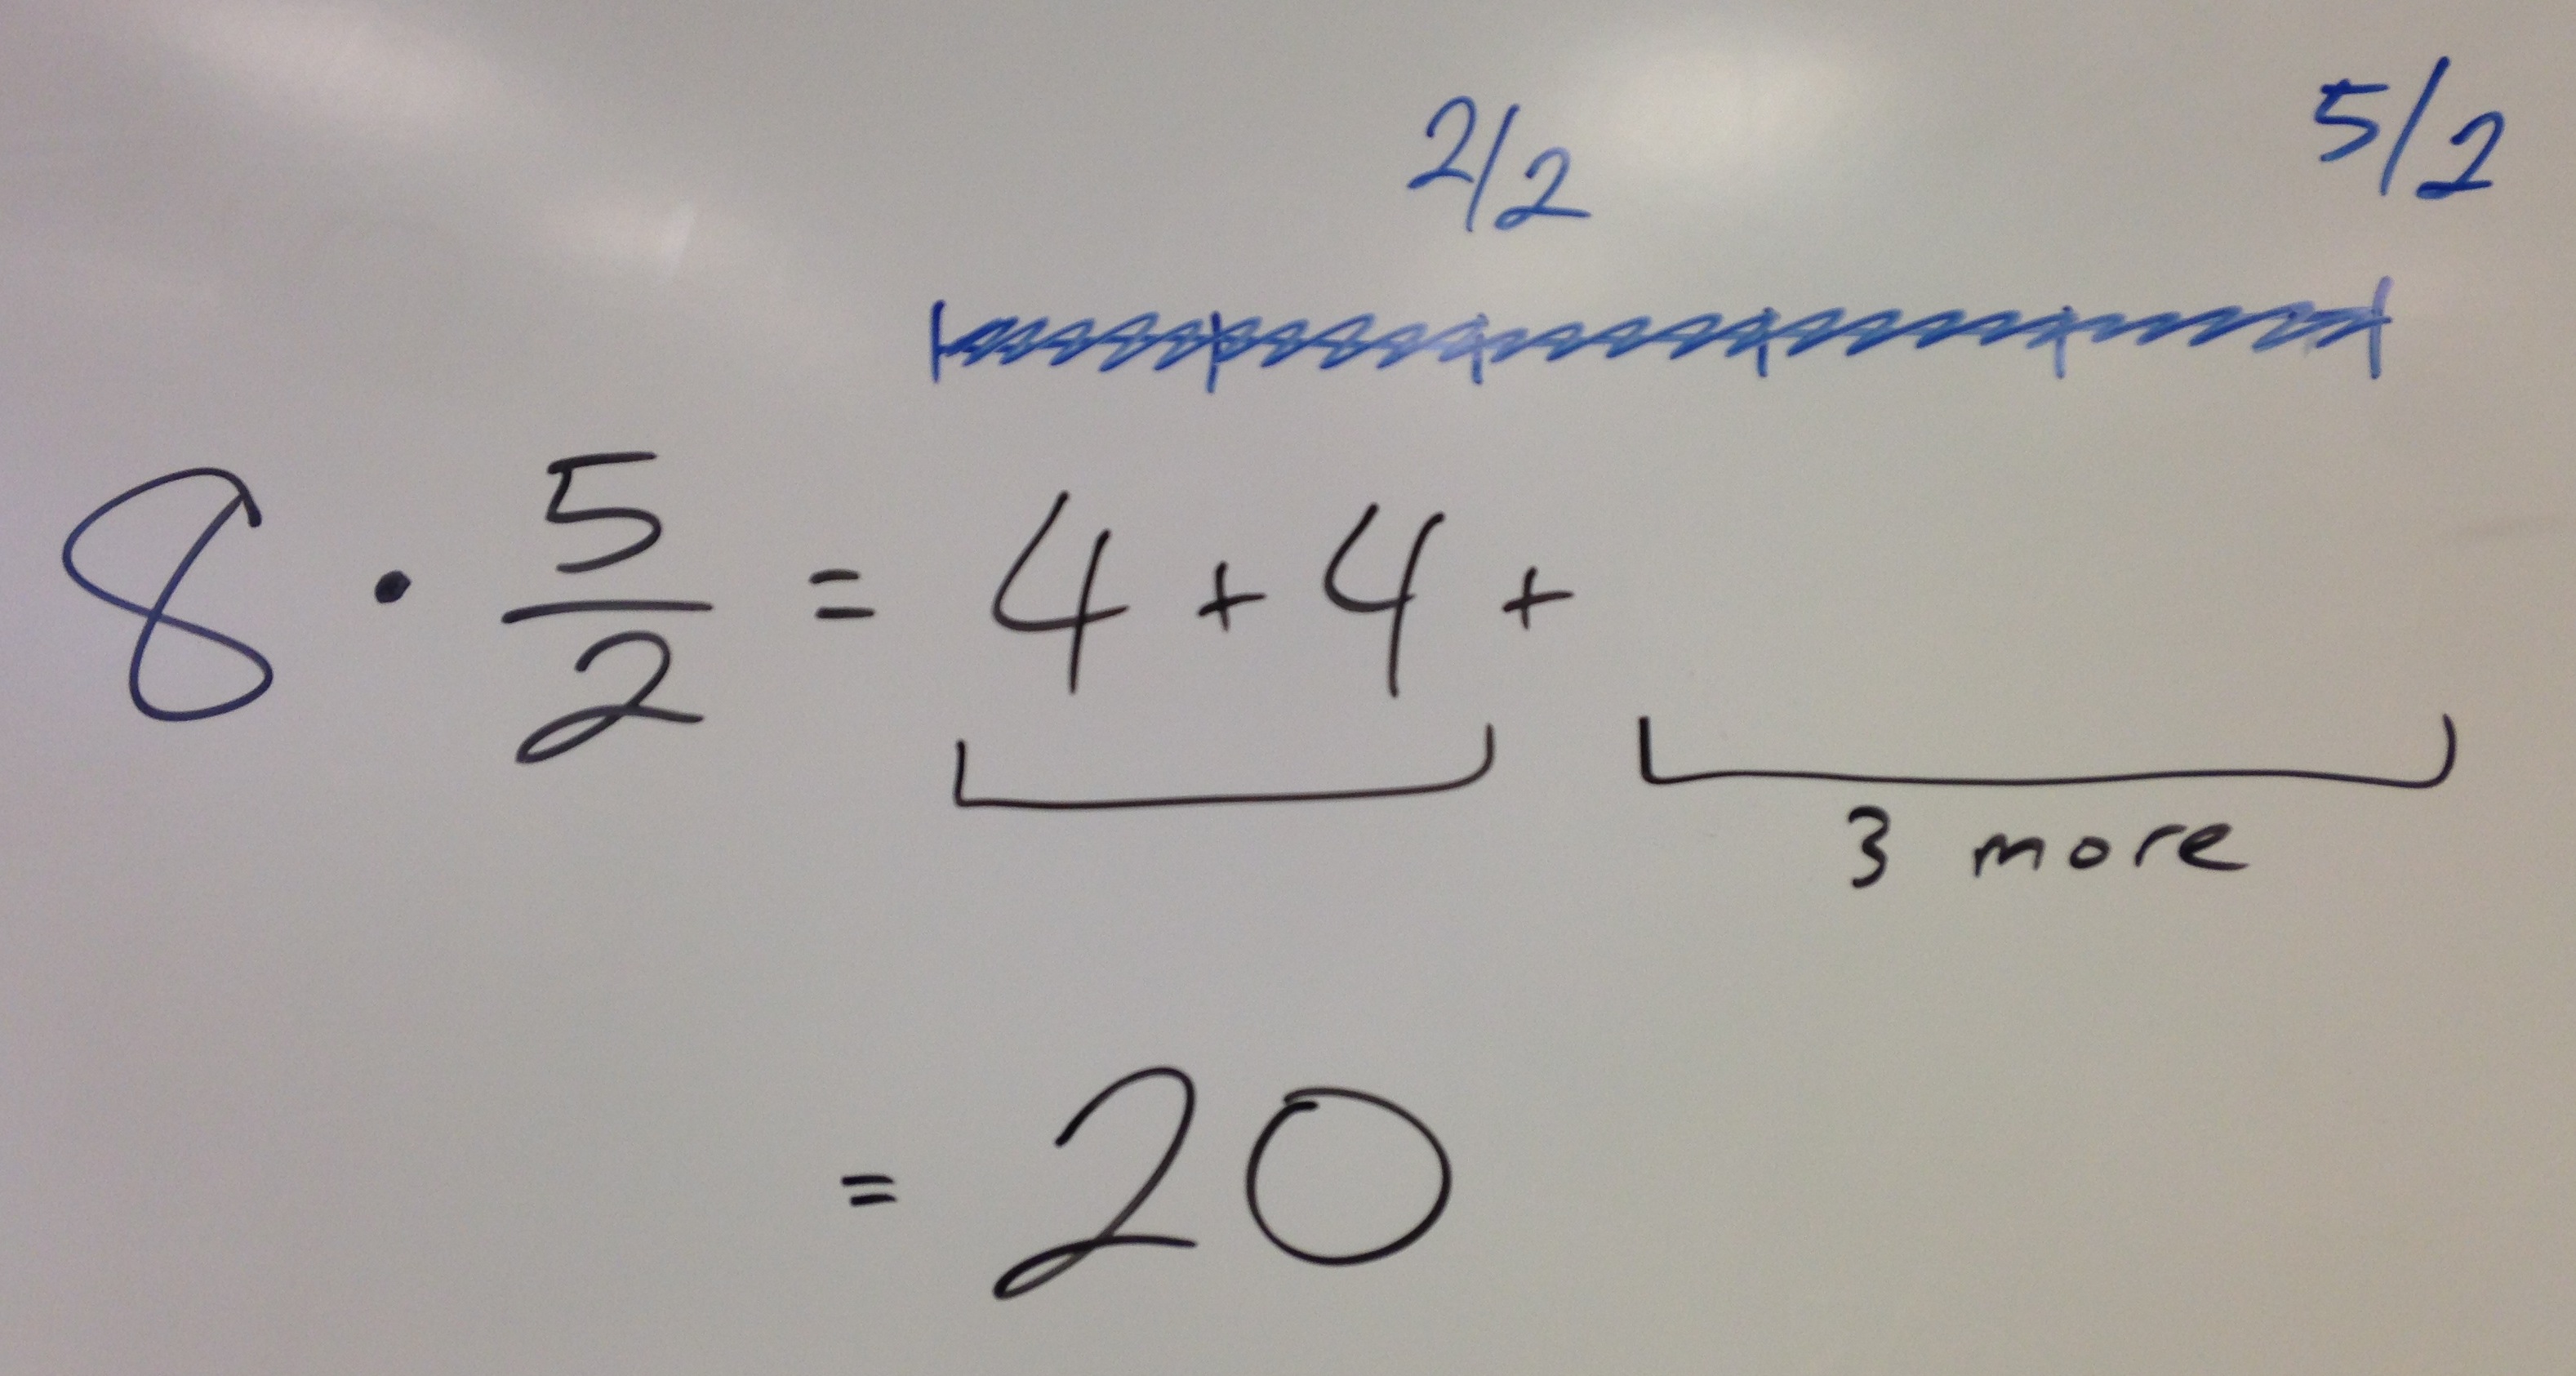 2/2 5/2
8 · 5/2 = 4 + 4 +
3 more
= 20